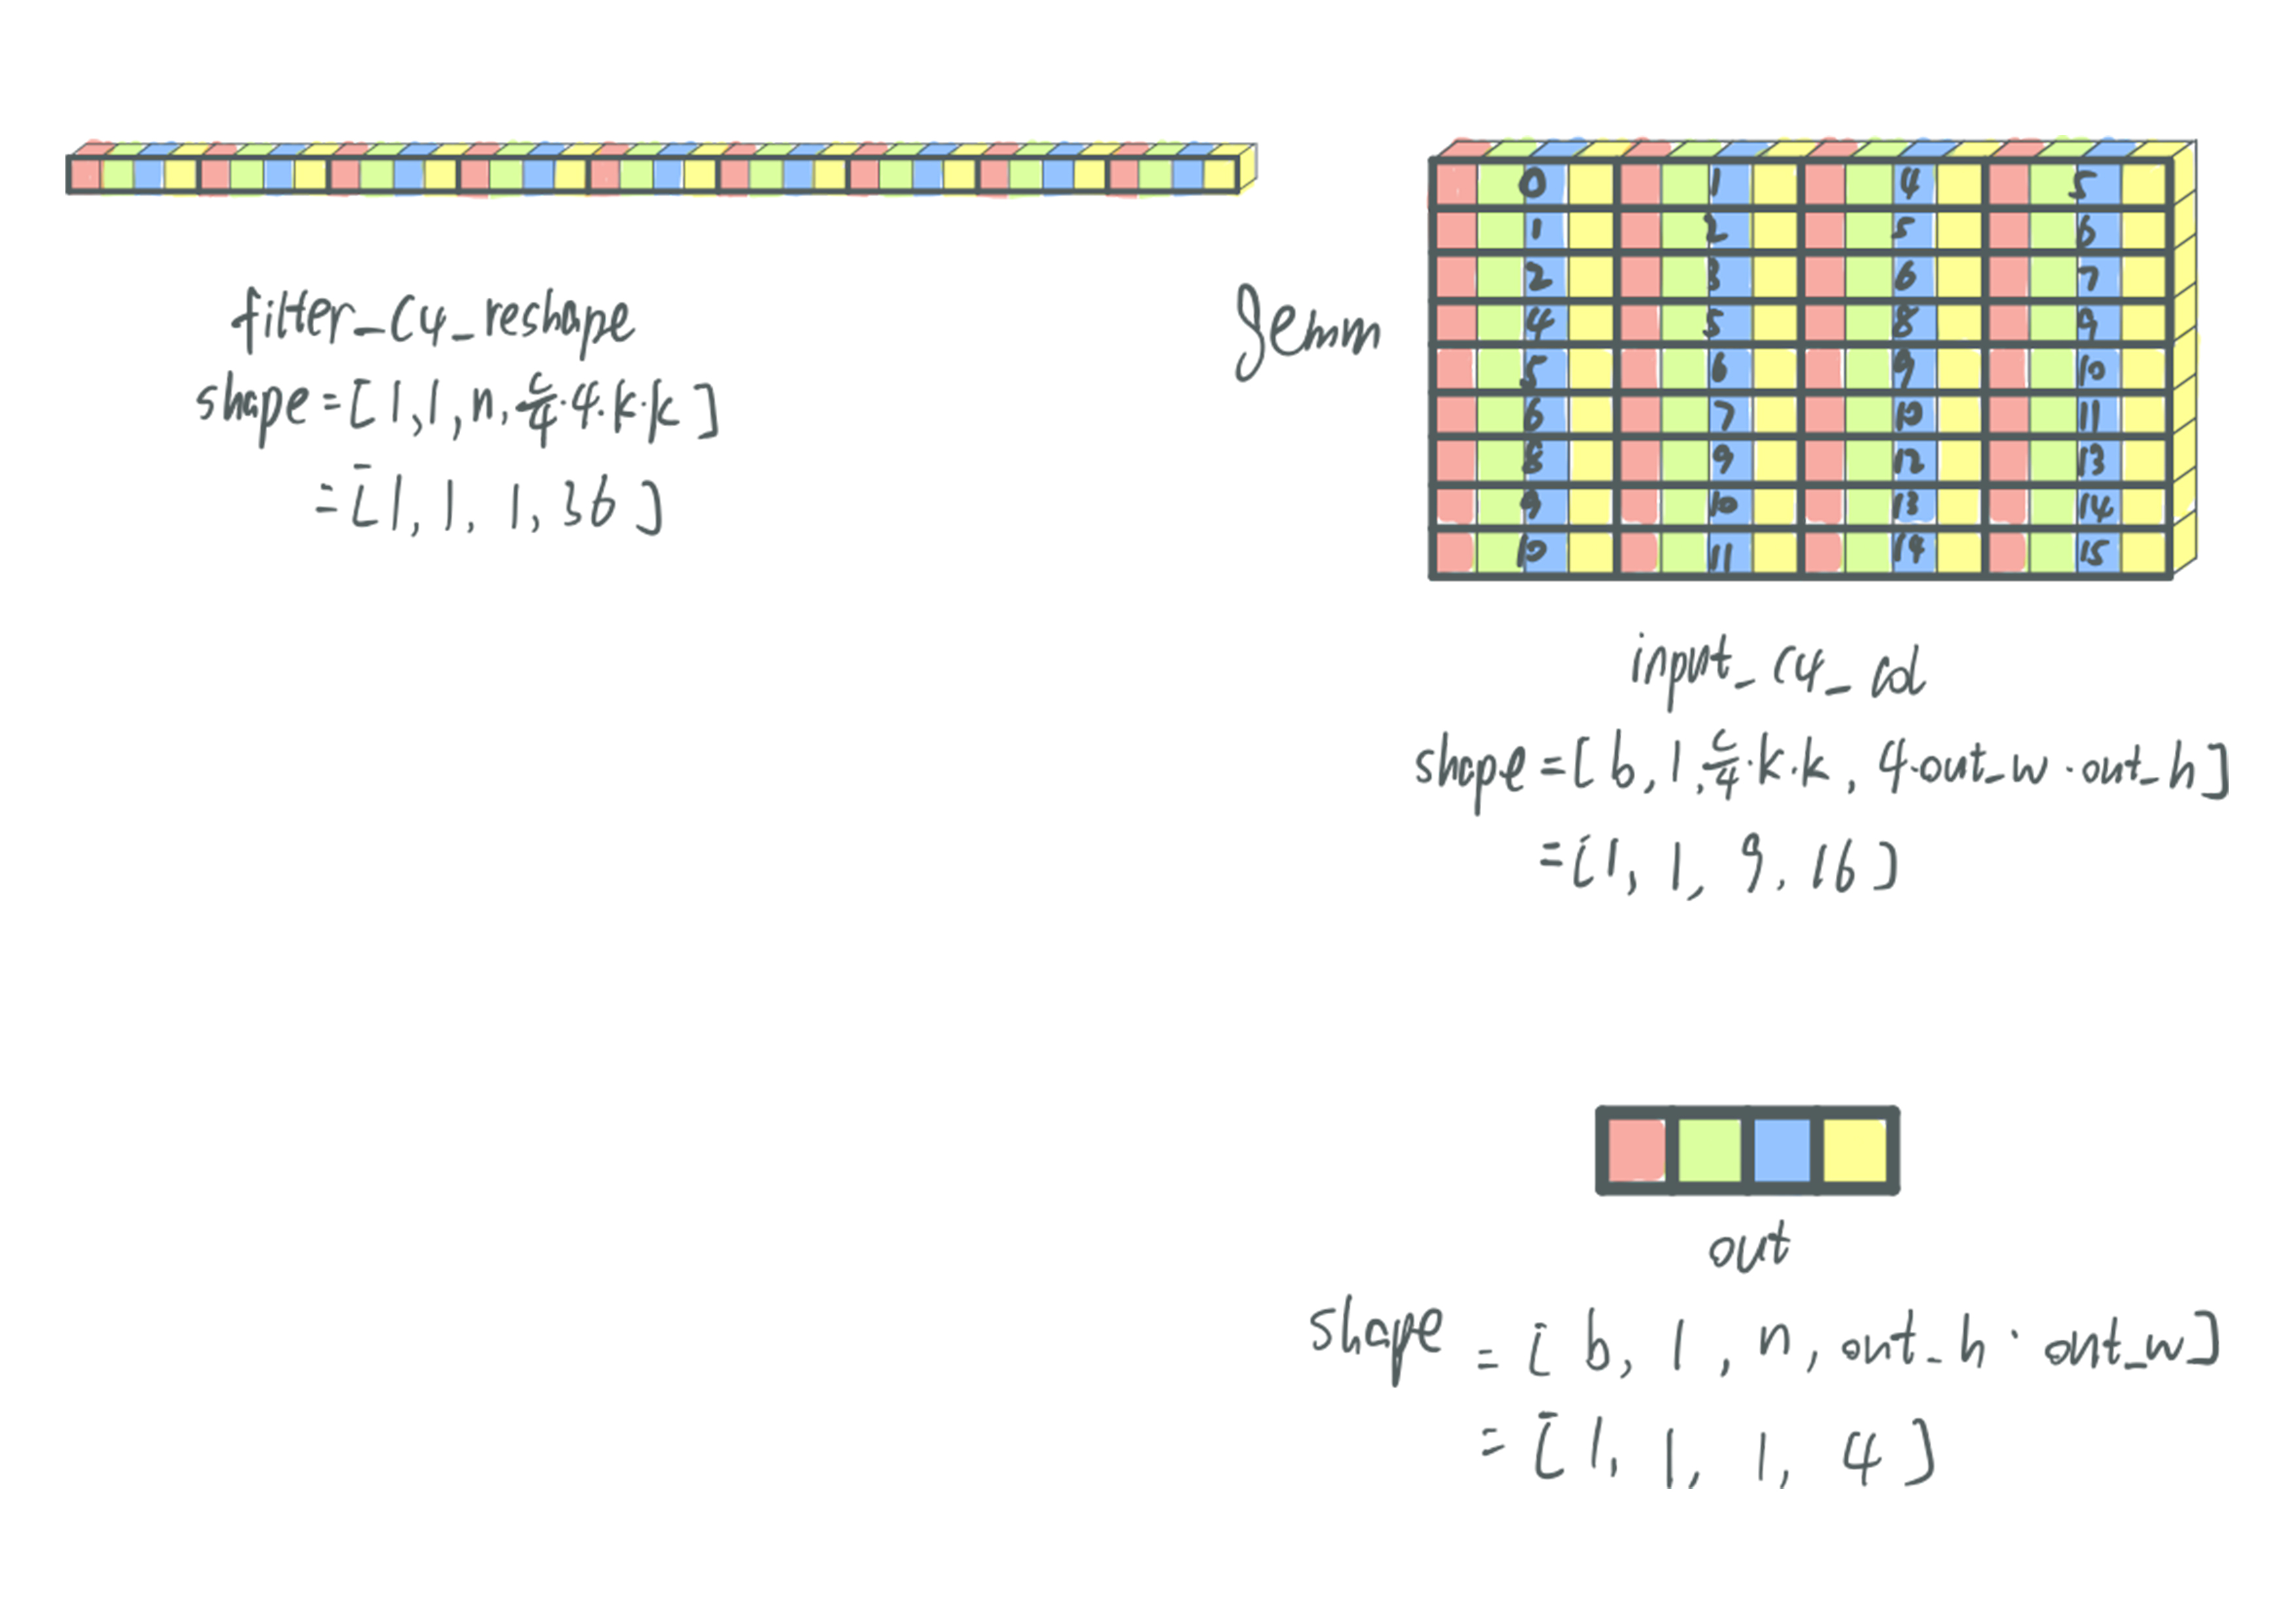 filter_C4_reshape
shape=[1,1,n,c/4·4·k·k]
=[1,1,1,36]
Gemm
0 1 4 5
1 2 5 6
2 3 6 7
4 5 8 9
5 6 9 10
6 7 10 11
8 9 12 13
9 10 13 14
10 11 14 15
input_C4_col
shape=[b,1,c/4·k·k,4·out_w·out_h]
=[1,1,9,16]
out
shape=[b,1,n,out_h·out_w]
=[1,1,1,4]